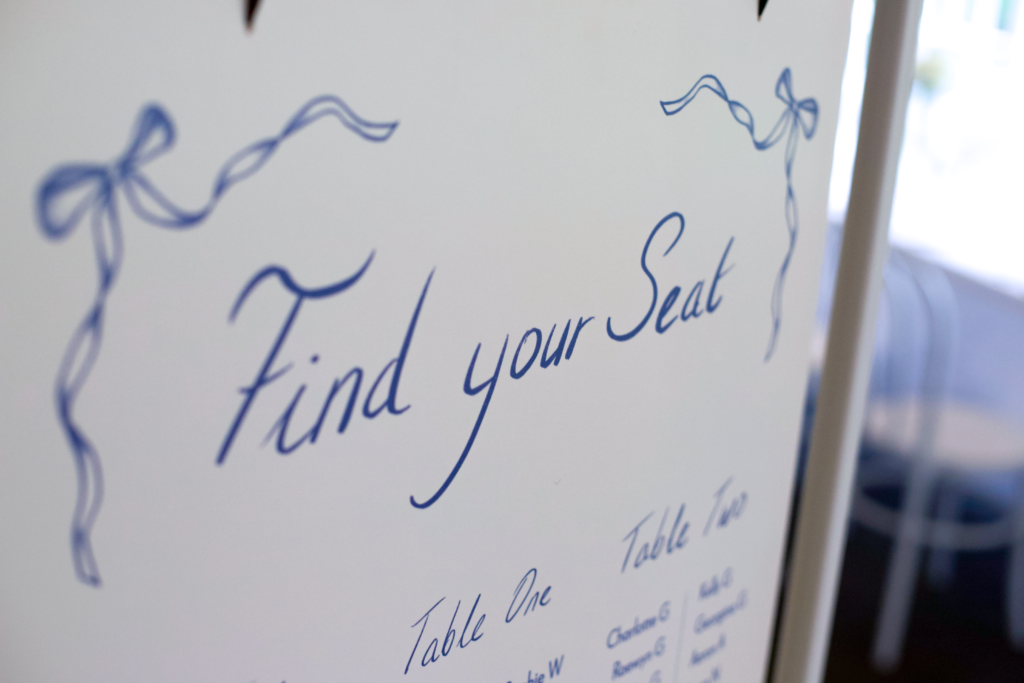 Find your Seat
Table One
Table Two
Charlotte G
Roswyn G
Kelly G
Georgina G
W
G